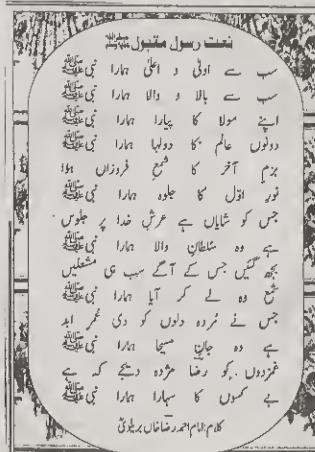 نعت رسول مقبول ﷺ
سب سے اولیٰ و اعلیٰ ہمارا نبی ﷺ
سب سے بالا و والا ہمارا نبی ﷺ
اپنے مولا کا پیارا ہمارا نبی ﷺ
دونوں عالم کا دولہا ہمارا نبی ﷺ
بزم آخر کا شمع فروزاں ہوا
نور اوّل کا جلوہ ہمارا نبی ﷺ
جس کو شایاں ہے عرش خدا پر جلوس
ہے وہ سُلطانِ والا ہمارا نبی ﷺ
بجھ گئیں جس کے آگے سب ہی مشعلیں
شمع وہ لے کر آیا ہمارا نبی ﷺ
جس نے مُردہ دلوں کو دی عُمر ابد
ہے وہ جانِ مسیحا ہمارا نبی ﷺ
غمزدوں کو رضا مژدہ دیجے کہ ہے
بے کسوں کا سہارا ہمارا نبی ﷺ
کلام: امام احمد رضا خاں بریلویؒ